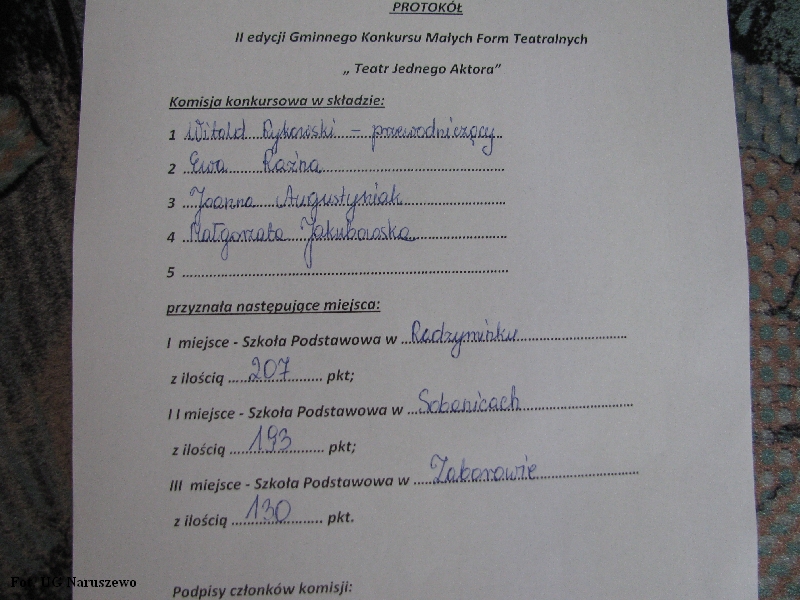 PROTOKÓŁ
II edycji Gminnego Konkursu Małych Form Teatralnych
„ Teatr Jednego Aktora”
Komisja konkursowa w składzie:
1 Witold Rykowski – przewodniczący
2 Ewa Raźna
3 Joanna Augustyniak
4 Małgorzata Jakubowska
5
przyznała następujące miejsca:
I miejsce - Szkoła Podstawowa w Radzyminku
z ilością 207 pkt;
II miejsce - Szkoła Podstawowa w Sobanicach
z ilością 193 pkt;
III miejsce - Szkoła Podstawowa w Zaborowie
z ilością 130 pkt.
Podpisy członków komisji:
Fot. UG Naruszewo